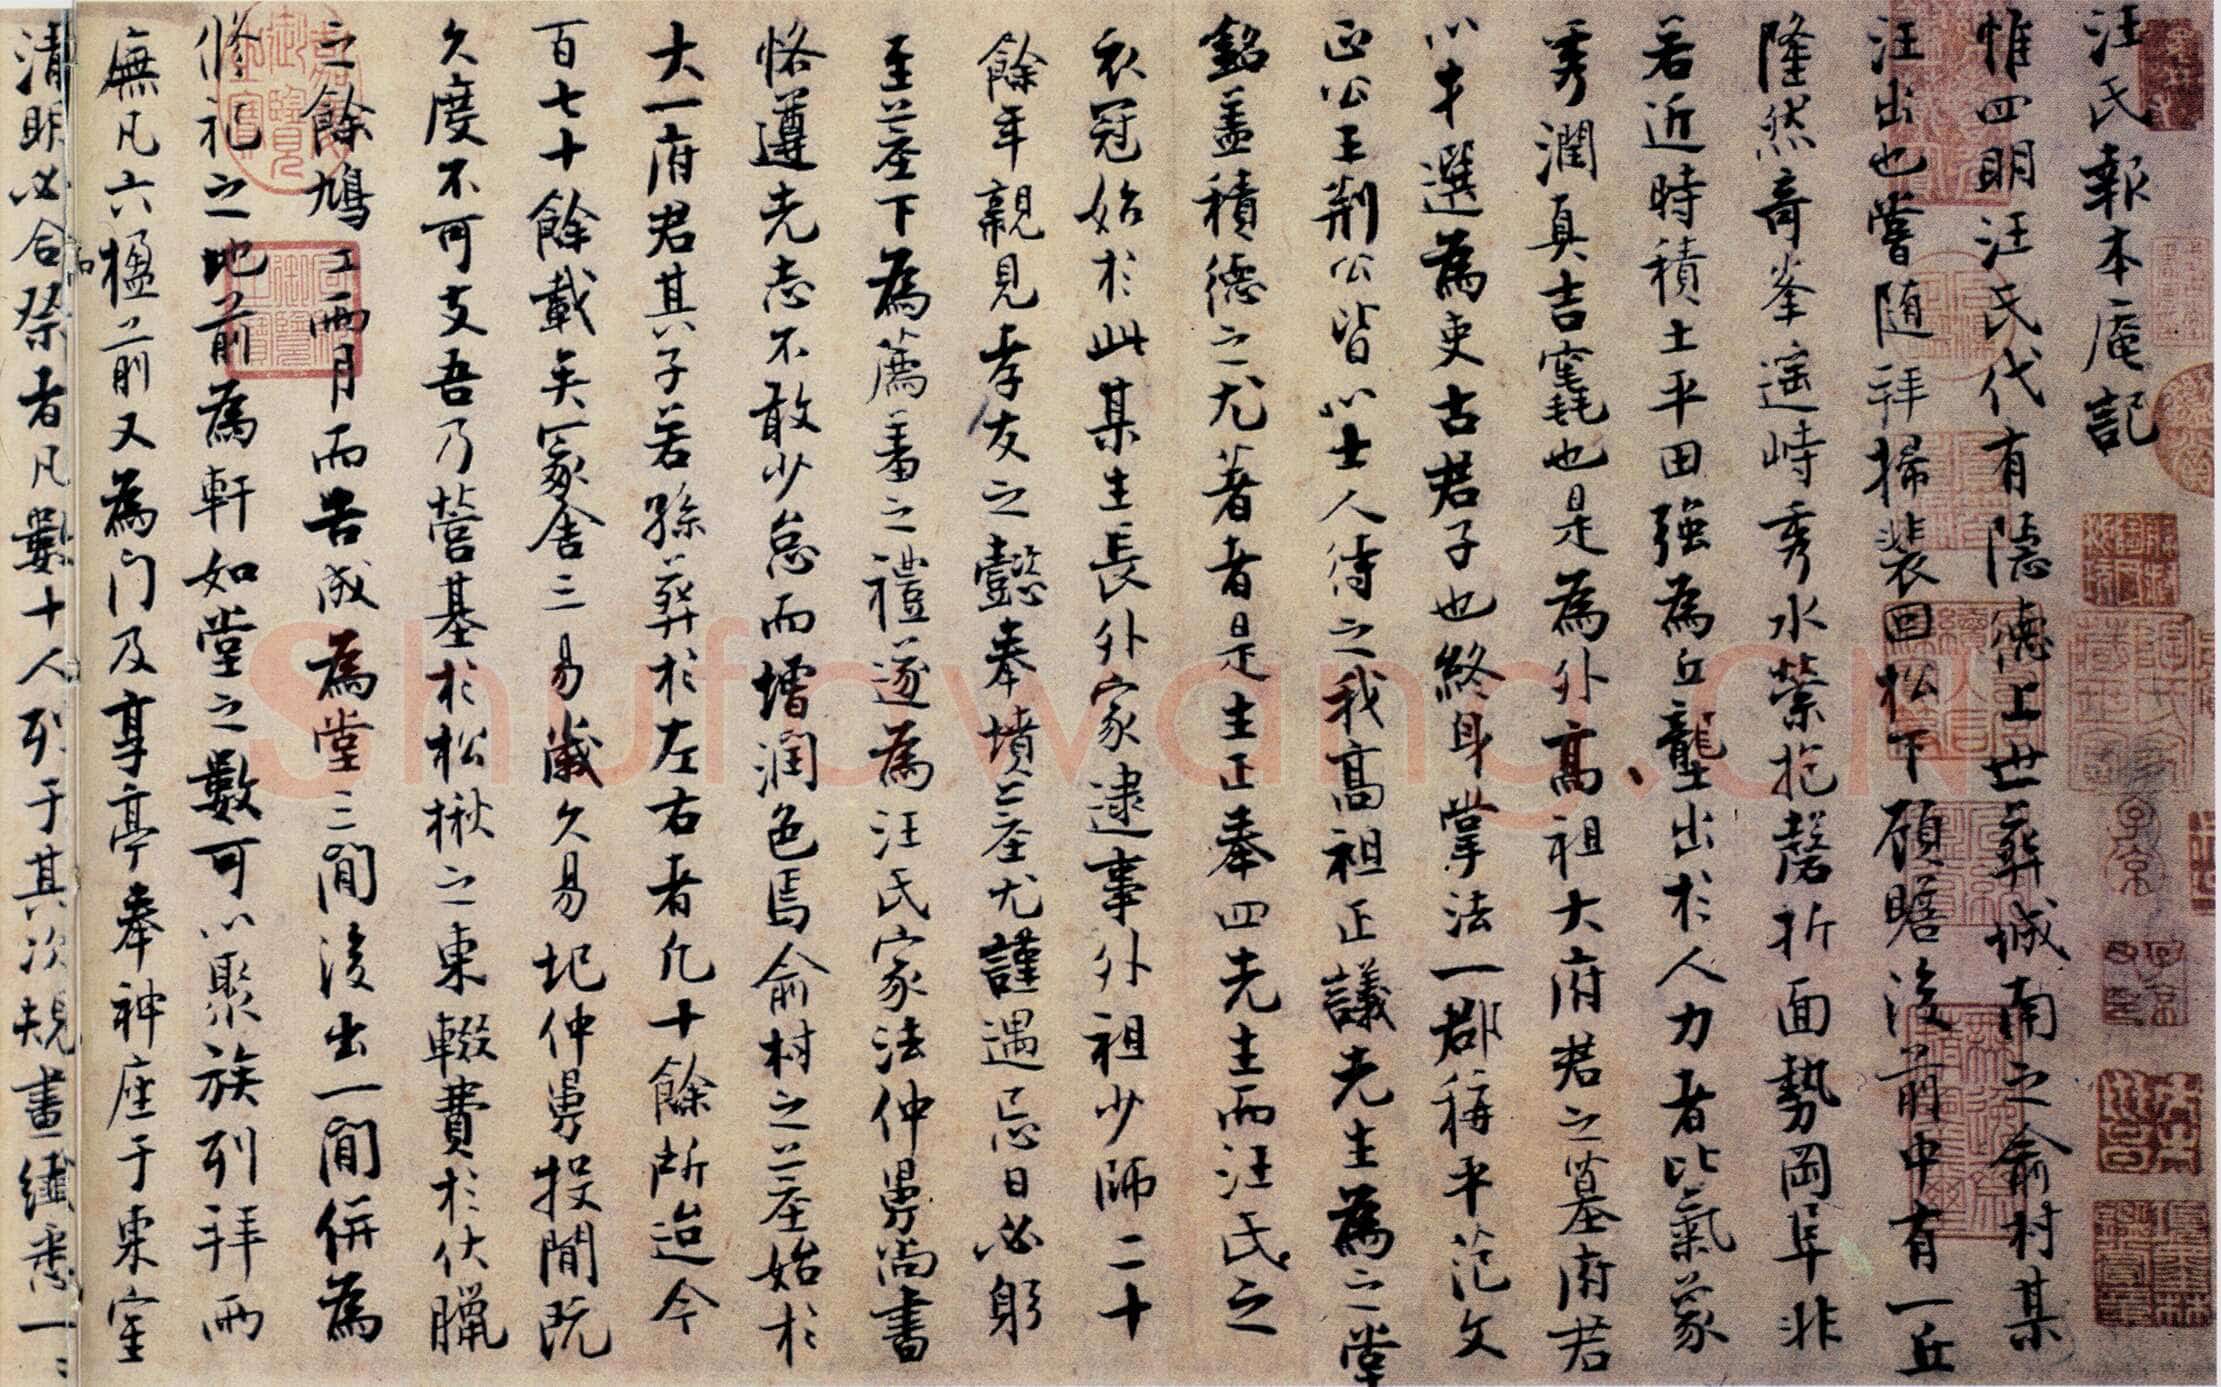 汪氏報本庵記
惟四明汪氏代有隱德上世葬城南之俞村某
汪出也嘗随拜掃裴回松下顾瞻後前中有一丘
隆然奇峯遥峙秀水縈抱磬折面勢岡阜非
若近時積土平田強為丘壟出於人力者比氣蒙
秀潤真吉竁也是為外高祖大府君之墓府君
以才選為吏古君子也終身掌法一郡称平范文
正公王荆公皆以士人待之我高祖正議先生為之堂
銘盖積德之尤著者是生正奉四先生而汪氏之
衣冠始於此某生長外家逮事外祖少師二十
餘年親見孝友之懿奉墳䒭尤謹遇忌日必躬
至䒭下為薦羞之禮遂為汪氏家法仲舅尚書
恪遵先志不敢少怠而增润色焉俞村之䒭始於
大一府君其子若孫葬於左右者凡十餘所迨今
百七十餘載矣冢舍三易歲久易圯仲舅投閒既
久度不可支吾乃營基於松楸之東輟費於伏臘
之餘鳩工兩月而告成為堂三間後出一間併為
修祀之地前為軒如堂之數可以聚族列拜两
廡凡六楹前又為门及享亭奉神座于東室
清明必合祭者凡數十人列于其次規畫纖悉一：
Shufawang.CN